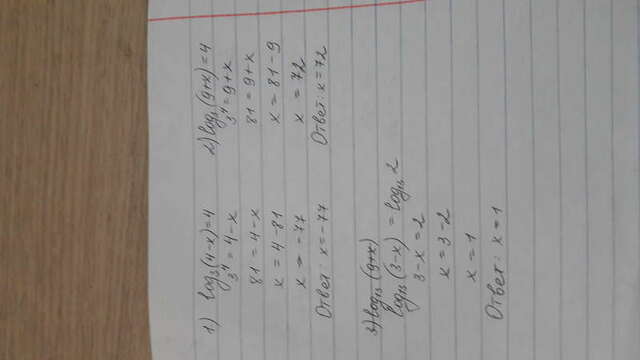 1) log₃(4-x)=4
3⁴ = 4-x
81 = 4-x
x = 4-81
x = -77
Ответ: x=-77
2) log₃(9+x)=4
3⁴=9+x
81=9+x
x = 81-9
x = 72
Ответ: x=72
3) log₁₃(9+x)
log₁₃(3-x) = log₁₃2
3-x=2
x=3-2
x=1
Ответ: x=1